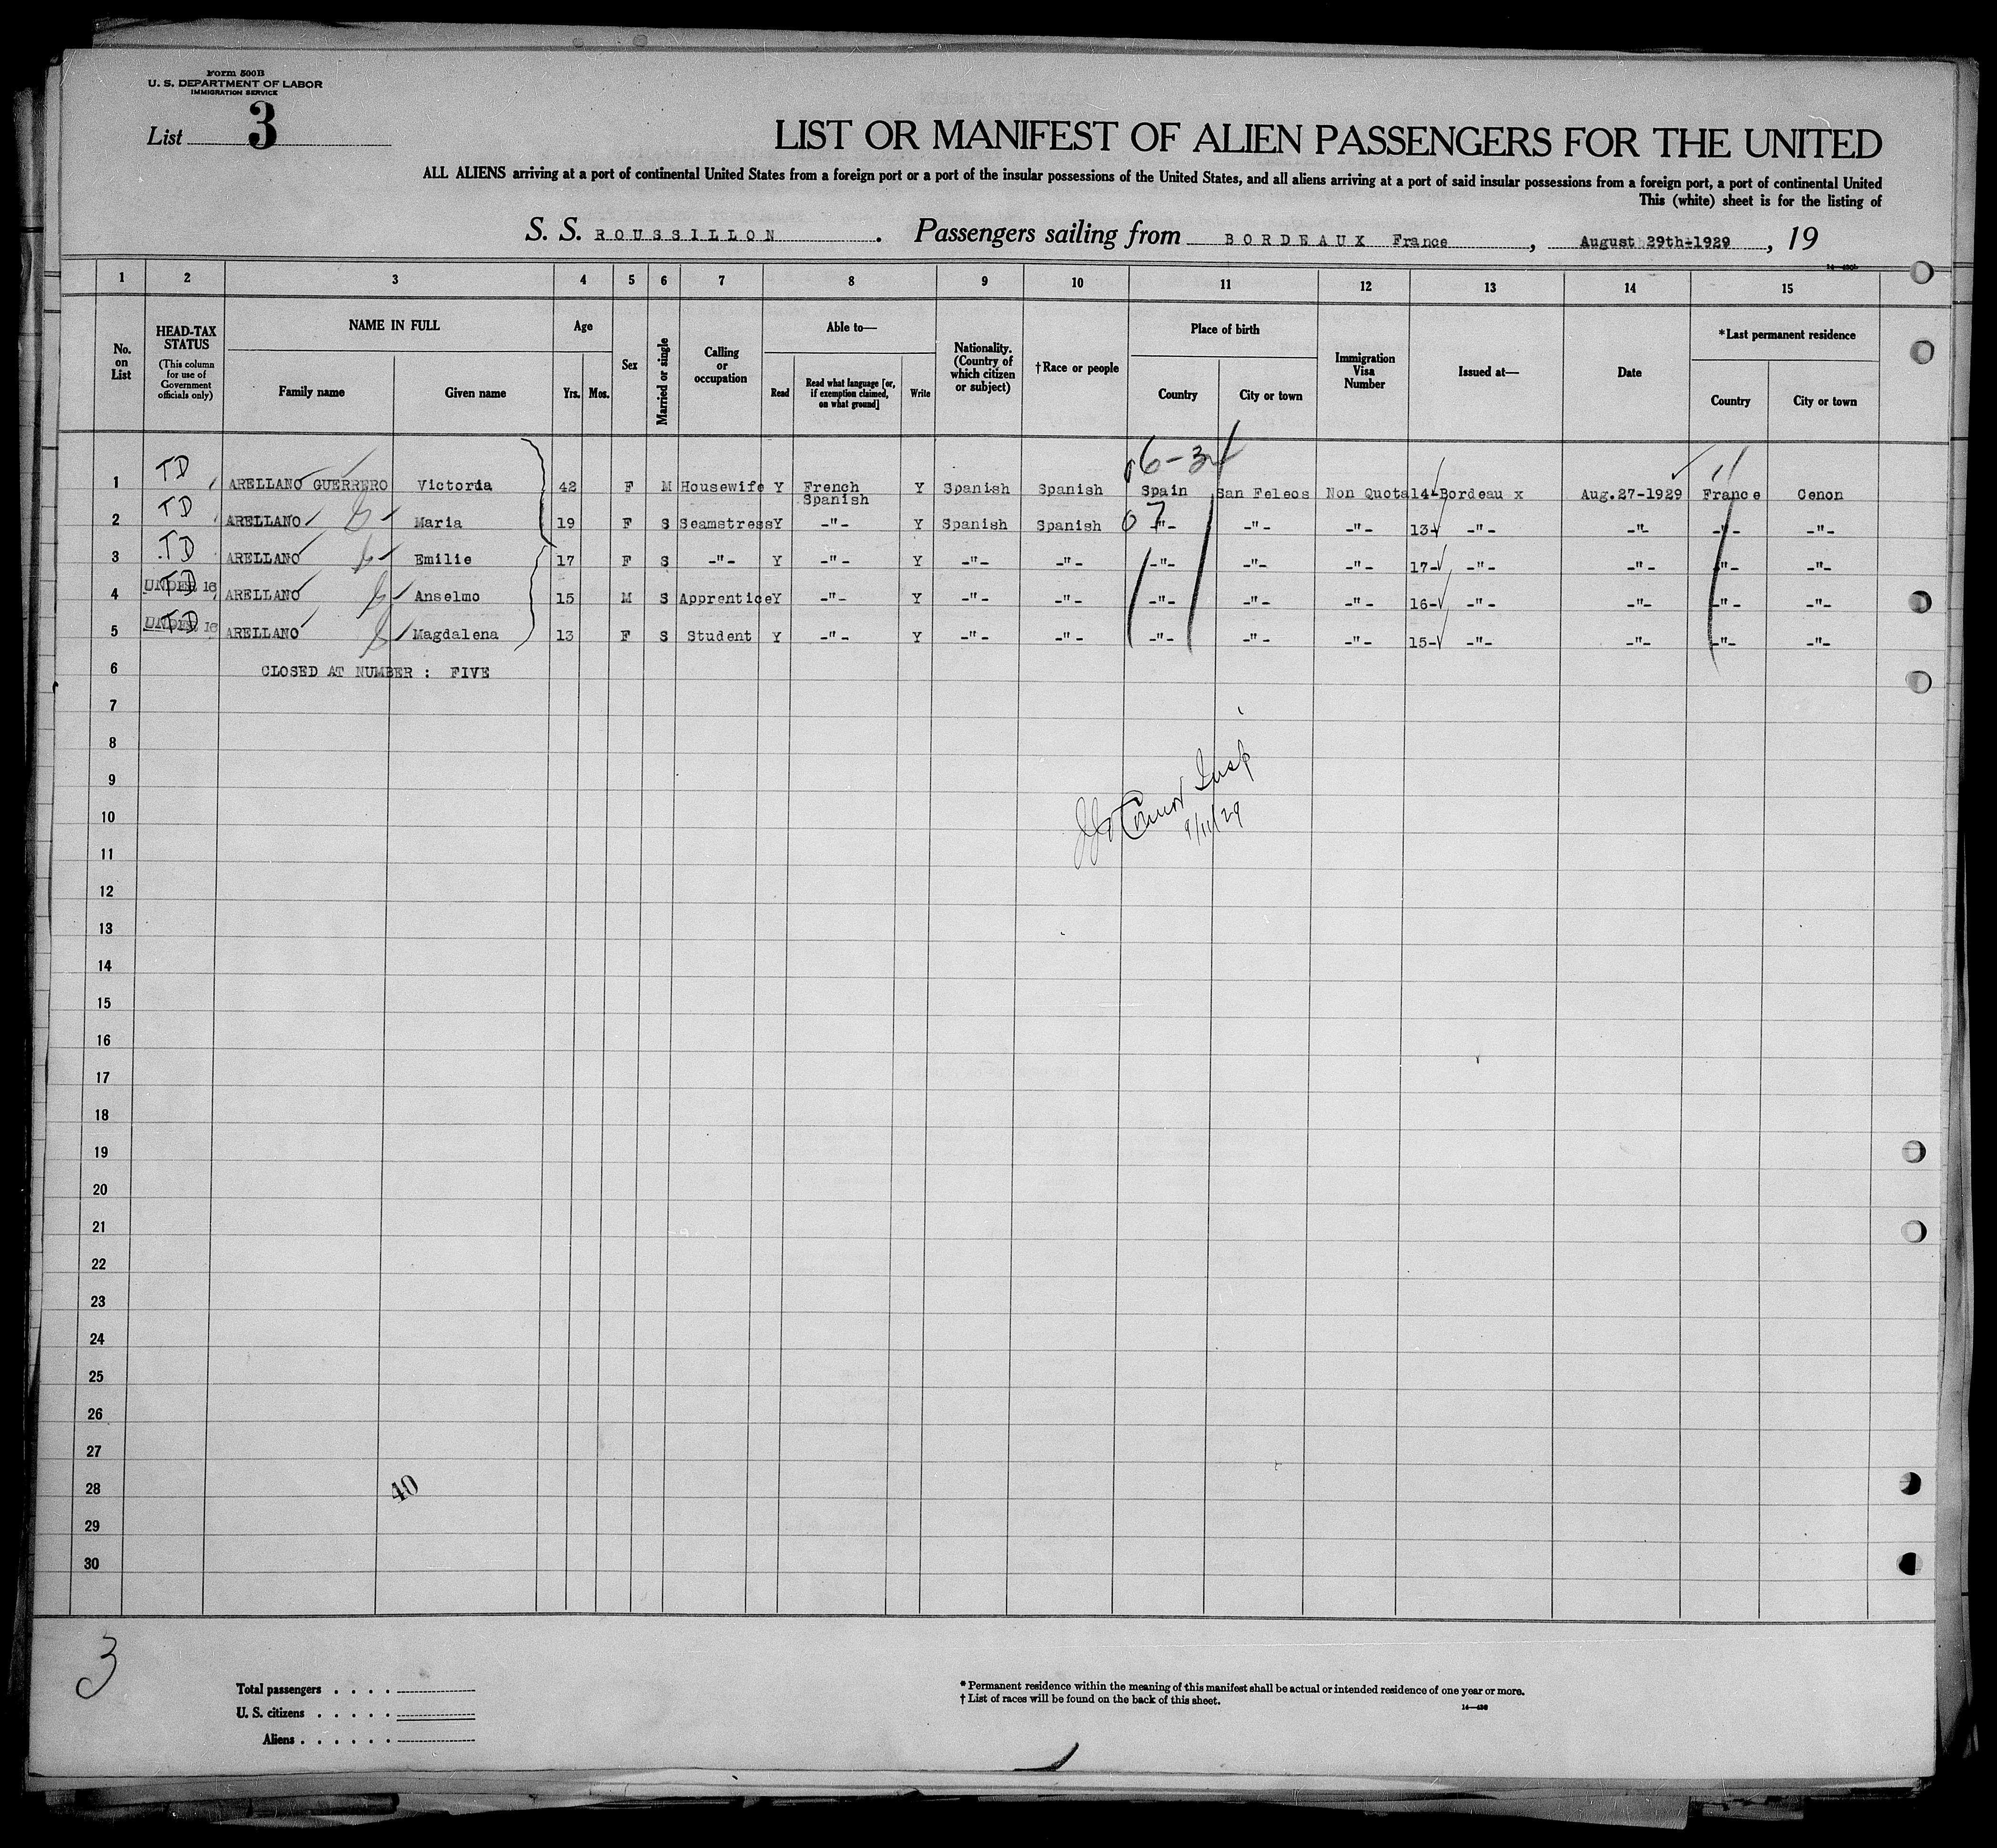 Form 500B
U. S. DEPARTMENT OF LABOR
IMMIGRATION SERVICE
List 3
LIST OR MANIFEST OF ALIEN PASSENGERS FOR THE UNITED
ALL ALIENS arriving at a port of continental United States from a foreign port or a port of the insular possessions of the United States, and all aliens arriving at a port of said insular possessions from a foreign port, a port of continental United
This (white) sheet is for the listing of
S. S. ROUSSILLON . Passengers sailing from BORDEAUX France , August 29th-1929 , 19
1 2 3 4 5 6 7 8 9 10 11 12 13 14 15
No. on List
HEAD-TAX STATUS
(This column for use of Government officials only)
NAME IN FULL
Family name Given name
Age
Yrs. Mos.
Sex
Married or single
Calling or occupation
Able to—
Read
Read what language [or, if exemption claimed, on what ground]
Write
Nationality. (Country of which citizen or subject)
†Race or people
Place of birth
Country City or town
Immigration Visa Number
Issued at—
Date
*Last permanent residence
Country City or town
6-3
1 TD ARELLANO GUERRERO Victoria 42 F M Housewife Y French Spanish Y Spanish Spanish Spain San Feleos Non Quota 14-Bordeau x Aug.27-1929 France Cenon
2 TD ARELLANO Maria 19 F S Seamstress Y -"- Y Spanish Spanish 07 -"- -"- -"- 13- -"- -"- -"- -"-
3 TD ARELLANO Emilie 17 F S -"- Y -"- Y -"- -"- -"- -"- -"- 17- -"- -"- -"- -"-
4 UNDER 16 TD ARELLANO Anselmo 15 M S Apprentice Y -"- Y -"- -"- -"- -"- -"- 16- -"- -"- -"- -"-
5 UNDER 16 TD ARELLANO Magdalena 13 F S Student Y -"- Y -"- -"- -"- -"- -"- 15- -"- -"- -"- -"-
6 CLOSED AT NUMBER : FIVE
7
8
9
10
Insp
9/11/29
11
12
13
14
15
16
17
18
19
20
21
22
23
24
25
26
27
28 40
29
30
3
Total passengers . . . .
U. S. citizens . . . . .
Aliens . . . . . .
* Permanent residence within the meaning of this manifest shall be actual or intended residence of one year or more.
† List of races will be found on the back of this sheet.